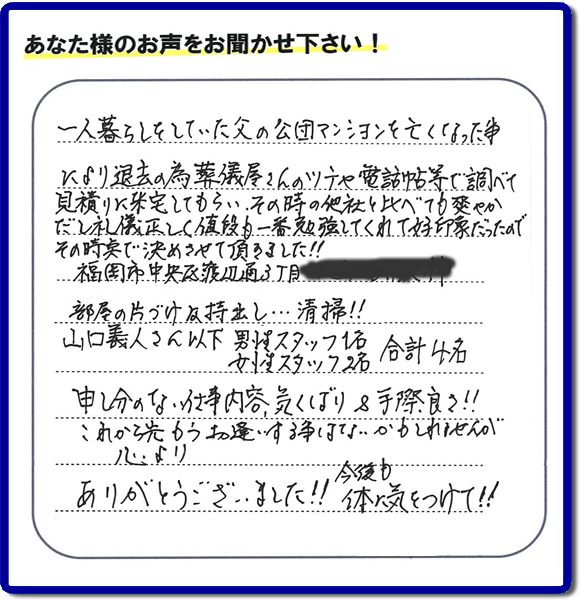 あなた様のお声をお聞かせ下さい！
一人暮らしをしていた父の公団マンションを亡くなった事
により退去の為葬儀屋さんのツテや電話帖等で調べて
見積りに来宅してもらい、その時の他社と比べても爽やか
だし礼儀正しく値段も一番勉強してくれて好印象だったので
その時点で決めさせて頂きました!!
福岡市中央区渡辺通3丁目
部屋の片づけ及持出し…清掃!!
山口義人さん以下 男性スタッフ1名
女性スタッフ2名 合計4名
申し分のない仕事内容、気くばり&手際良さ!!
これから先もうお逢いする事はないかもしれませんが
心より
ありがとうございました!! 今後も
体に気をつけて!!